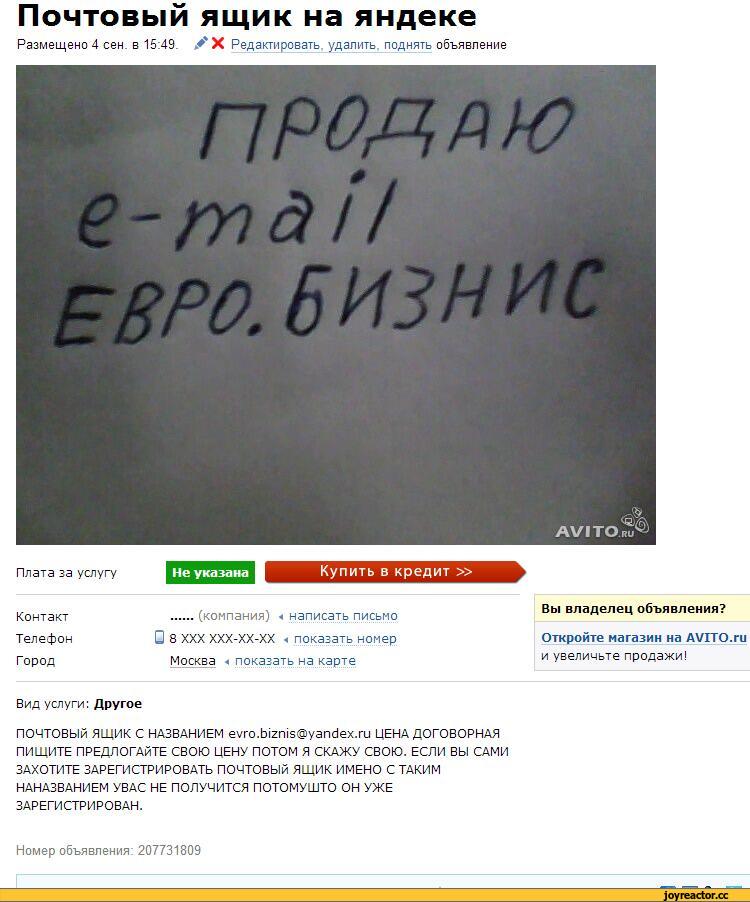 Почтовый ящик на яндеке
Размещено 4 сен. в 15:49. Редактировать, удалить, поднять объявление
ПРОДАЮ
e-mail
ЕВРО.БИЗНИС
AVITO.RU
Плата за услугу Не указана Купить в кредит >>
Контакт ...... (компания) написать письмо
Телефон 8 XXX XXX-XX-XX показать номер
Город Москва показать на карте
Вы владелец объявления?
Откройте магазин на AVITO.ru
и увеличьте продажи!
Вид услуги: Другое
ПОЧТОВЫЙ ЯЩИК С НАЗВАНИЕМ evro.biznis@yandex.ru ЦЕНА ДОГОВОРНАЯ
ПИЩИТЕ ПРЕДЛОГАЙТЕ СВОЮ ЦЕНУ ПОТОМ Я СКАЖУ СВОЮ. ЕСЛИ ВЫ САМИ
ЗАХОТИТЕ ЗАРЕГИСТРИРОВАТЬ ПОЧТОВЫЙ ЯЩИК ИМЕНО С ТАКИМ
НАНАЗВАНИЕМ УВАС НЕ ПОЛУЧИТСЯ ПОТОМУШТО ОН УЖЕ
ЗАРЕГИСТРИРОВАН.
Номер объявления: 207731809
joyreactor.cc